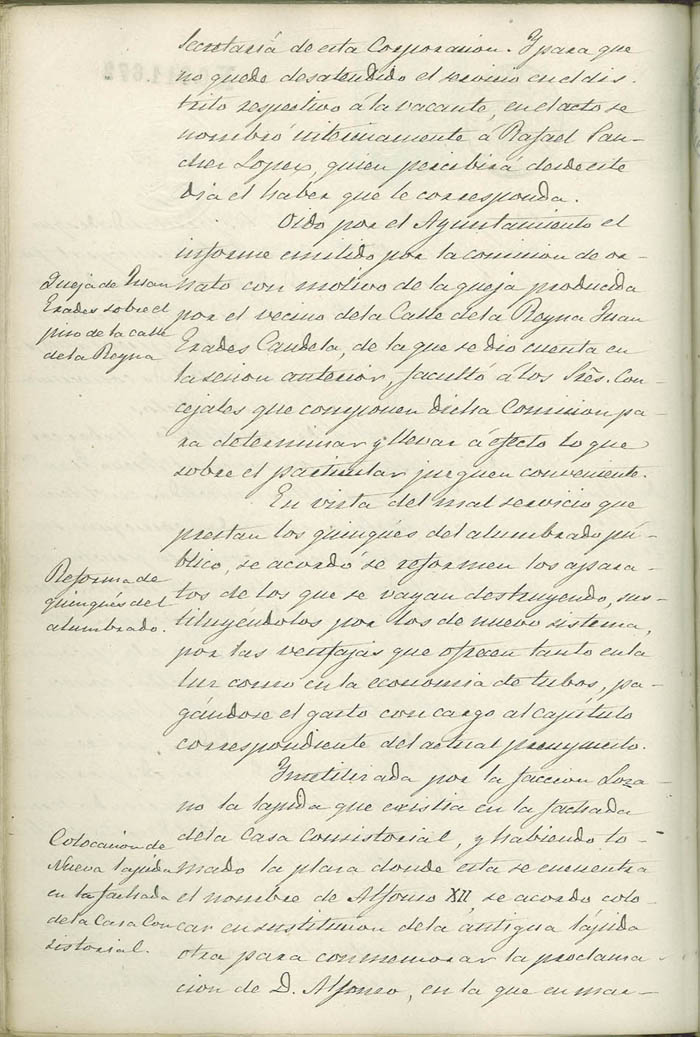 Secretaría de esta Corporacion. Y para que
no quede desatendido el servicio en el dis-
trito respectivo á la vacante, en el acto se
nombró interinamente á Rafael San-
chez Lopez, quien percibirá desde este
dia el haber que le corresponda.
Oido por el Ayuntamiento el
informe emitido por la comision de or-
nato con motivo de la queja producida
por el vecino de la Calle de la Reyna Juan
Erades Candela, de la que se dio cuenta en
la sesion anterior, facultó á los Sres. Con-
cejales que componen dicha Comision pa-
ra determinar y llevar á efecto lo que
sobre el particular juzguen conveniente.
Queja de Juan
Erades sobre el
piso de la calle
de la Reyna
En vista del mal servicio que
prestan los quinqués del alumbrado pú-
blico, se acordó se reformen los apara-
tos de los que se vayan destruyendo, sus-
tituyéndolos por los de nuevo sistema,
por las ventajas que ofrecen tanto en la
luz como en la economia de tubos, pa-
gándose el gasto con cargo al capítulo
correspondiente del actual presupuesto.
Reforma de
quinqués del
alumbrado.
Inutilizada por la faccion Loza-
no la lapida que existia en la fachada
de la Casa Consistorial, y habiendo to-
mado la plaza donde esta se encuentra
el nombre de Alfonso XII se acordo colo-
car en sustitucion de la antigua lápida
otra para conmemorar la proclama-
cion de D. Alfonso, en la que en mar-
Colocacion de
Nueva lapida
en la fachada
de la Casa Con
sistorial.